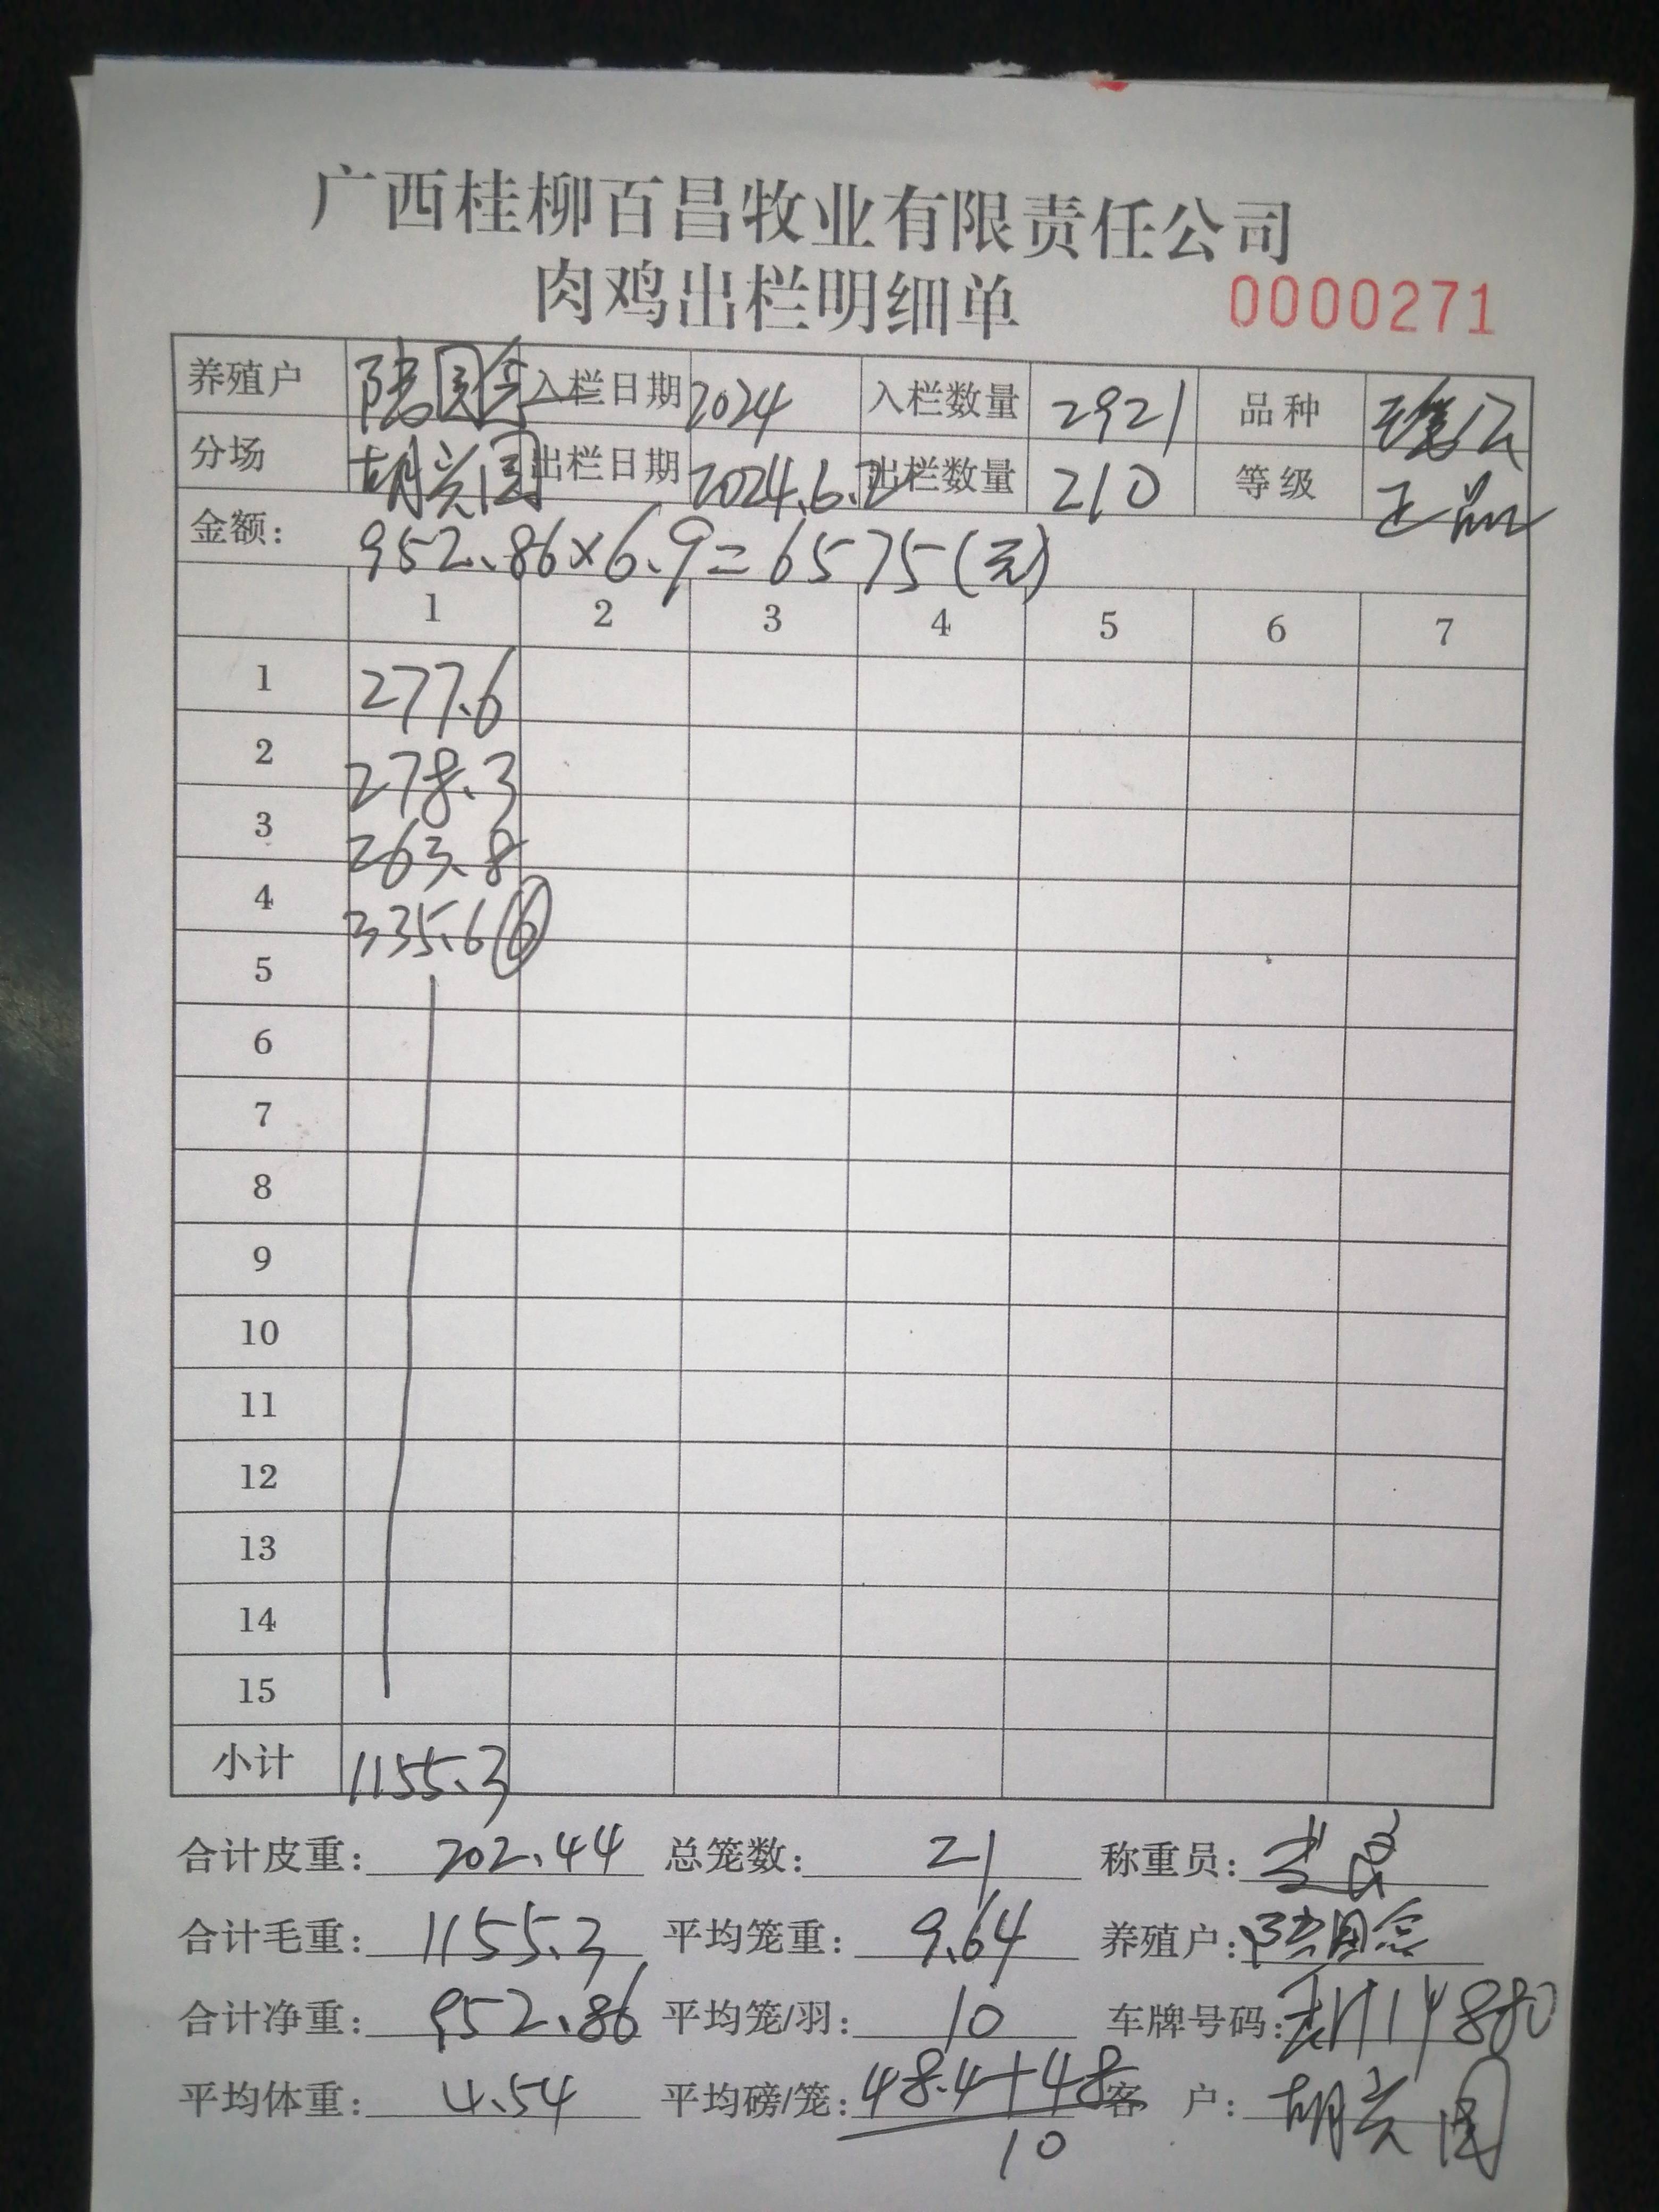 广西桂柳百昌牧业有限责任公司
肉鸡出栏明细单 0000271
养殖户 入栏日期 2024 入栏数量 2921 品种
分场 胡兴国 出栏日期 2024.6.2 出栏数量 210 等级 正品
金额: 952.86×6.9=6575(元)
1 2 3 4 5 6 7
1 277.6
2 278.3
3 263.8
4 335.6 ⑥
5
6
7
8
9
10
11
12
13
14
15
小计 1155.3
合计皮重: 202.44 总笼数: 21 称重员:
合计毛重: 1155.3 平均笼重: 9.64 养殖户:
合计净重: 952.86 平均笼/羽: 10 车牌号码:
平均体重: 4.54 平均磅/笼: 48.4+48 客户: 胡兴国
10